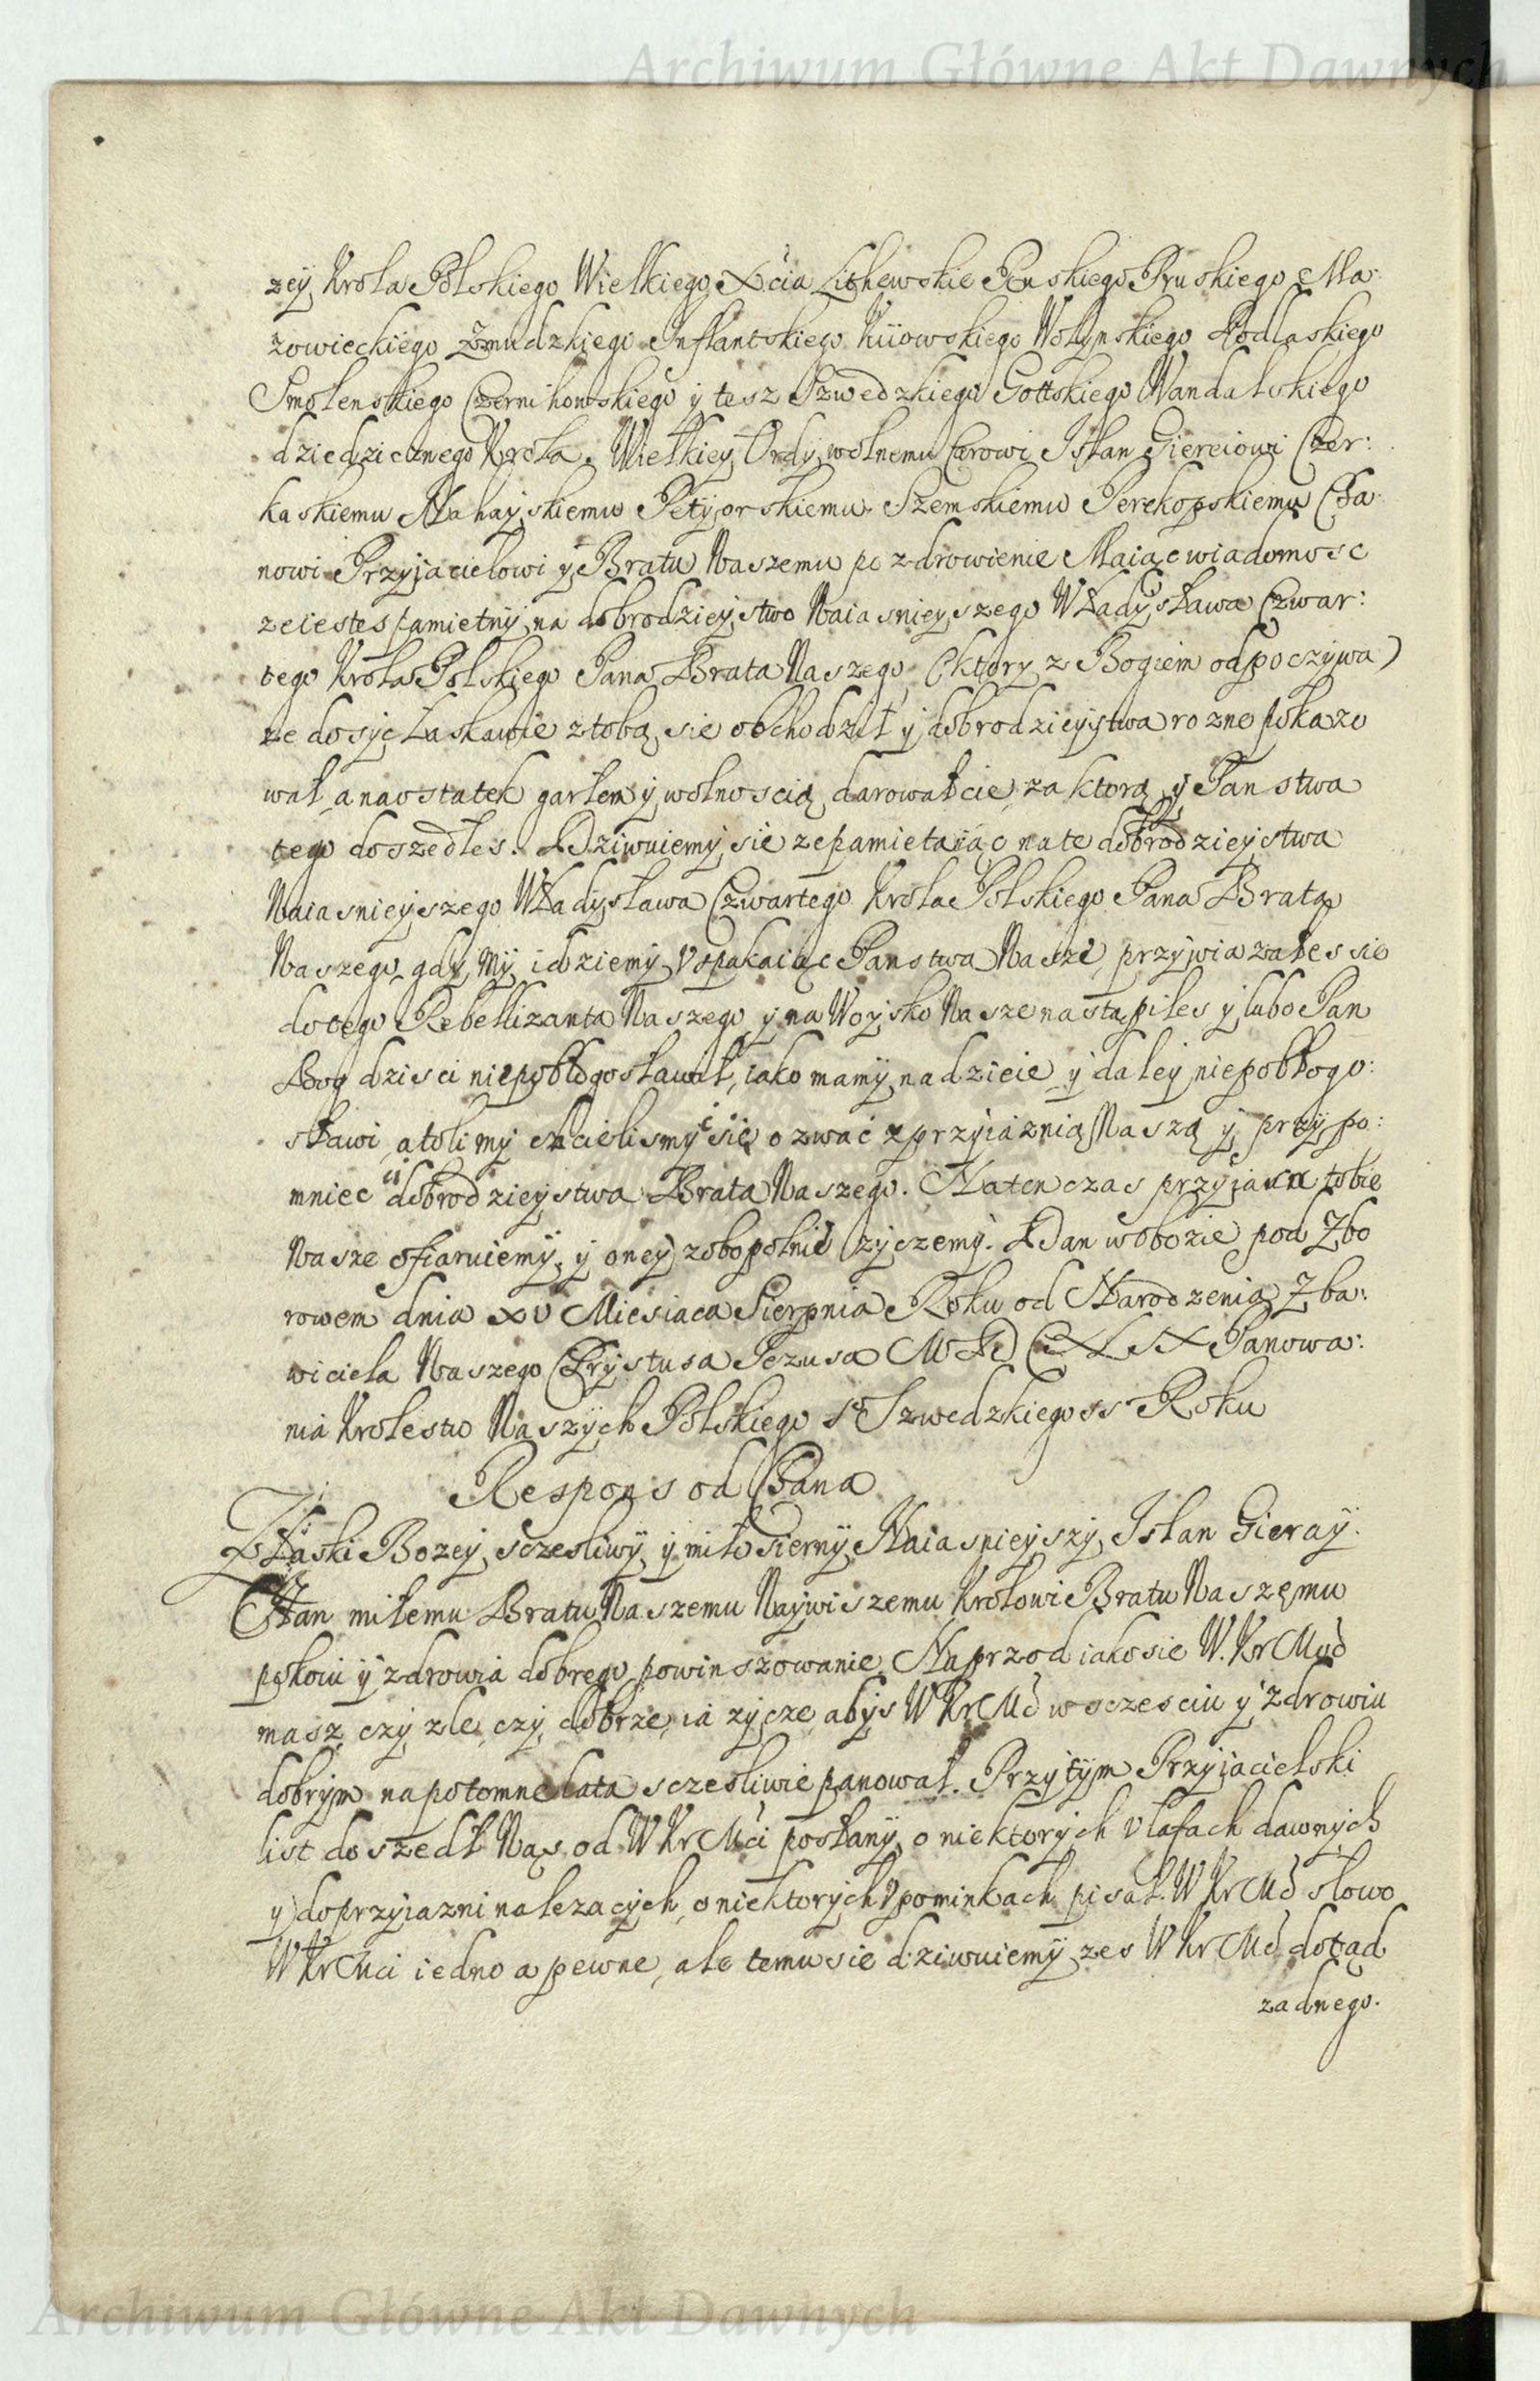 Archiwum Główne Akt Dawnych
zey Krola Polskiego Wielkiego Xcia Lithewskie Ruskiego Pruskiego Ma:
zowieckiego Zmudzkiego Inflantskiego Kiiowskiego Wołynskiego Podlaskiego
Smolenskiego Czernihowskiego y tesz Szwedzkiego Gottskiego Wandalskiego
dziedzicznego Krola. Wielkiey Ordy wolnemu Carowi Islan Giereiowi Czer:
kaskiemu Nahayskiemu Petyorskiemu Szemskiemu Perekopskiemu Cha:
nowi Przyjacielowi y Bratu Naszemu pozdrowienie Maiąc wiadomosc
zeiestes pamietny na dobrodzieystwo Naiasnieyszego Władysława Czwar:
tego Krola Polskiego Pana Brata Naszego (ktory z Bogiem odpoczywa)
ze dosyc łaskawie ztobą sie obchodził y dobrodzieystwa rozne pokazo
wał, a naostatek garłem y wolnoscią darowałcie, za ktorą y Panstwa
tego doszedłes. Dziwuiemy sie zepamietaiąc nate dobrodzieystwa
Naiasnieyszego Władysława Czwartego Krola Polskiego Pana Brata
Naszego gdy My idziemy Vspakaiąc Panstwa Nasze, przywiazałes sie
dotego Rebellizanta Naszego y na Woysko Nasze nastąpiłes y lubo Pan
Bog dzisci niepobłogosławał, iako mamy nadzieie y daley niepobłogo:
sławi, atoli my chcielismy cię ozwać zprzyiaznią Naszą y przypo:
mniec ci dobrodzieystwa Brata Naszego. Naten czas przyjazn tobie
Nasze ofiaruiemy y oney zobopolnie zyczemy. Dan wobozie pod Zbo
rowem dnia XV Miesiaca Sierpnia Roku od Narodzenia Zba:
wiciela Naszego Chrystusa Jezusa MDCXLIX Panowa:
nia Krolestw Naszych Polskiego 1o Szwedzkiego ss Roku
Respons od Chana
Złaski Bozey sczesliwy y miłosierny Naiasnieyszy Islan Gieray
Chan miłemu Bratu Naszemu Naywiszemu Krolowi Bratu Naszemu
pokoiu y zdrowia dobrego powinszowanie Naprzod iakosie W. Kr Mość
masz czy zle czy dobrze, ia zycze abys W Kr Mć w sczesciu y zdrowiu
dobrym napotomne lata sczesliwie panował. Przytym Przyjacielski
list doszedł Nas od W Kr Mći posłany o niektorych Vlafach dawnych
y doprzyiazni nalezacych, o niektorych Vpominkach pisał W Kr Mć słowo
W Kr Mci iedno a pewne, ale temu sie dziwuiemy zes W Kr Mć dotąd
zadnego.
Archiwum Główne Akt Dawnych